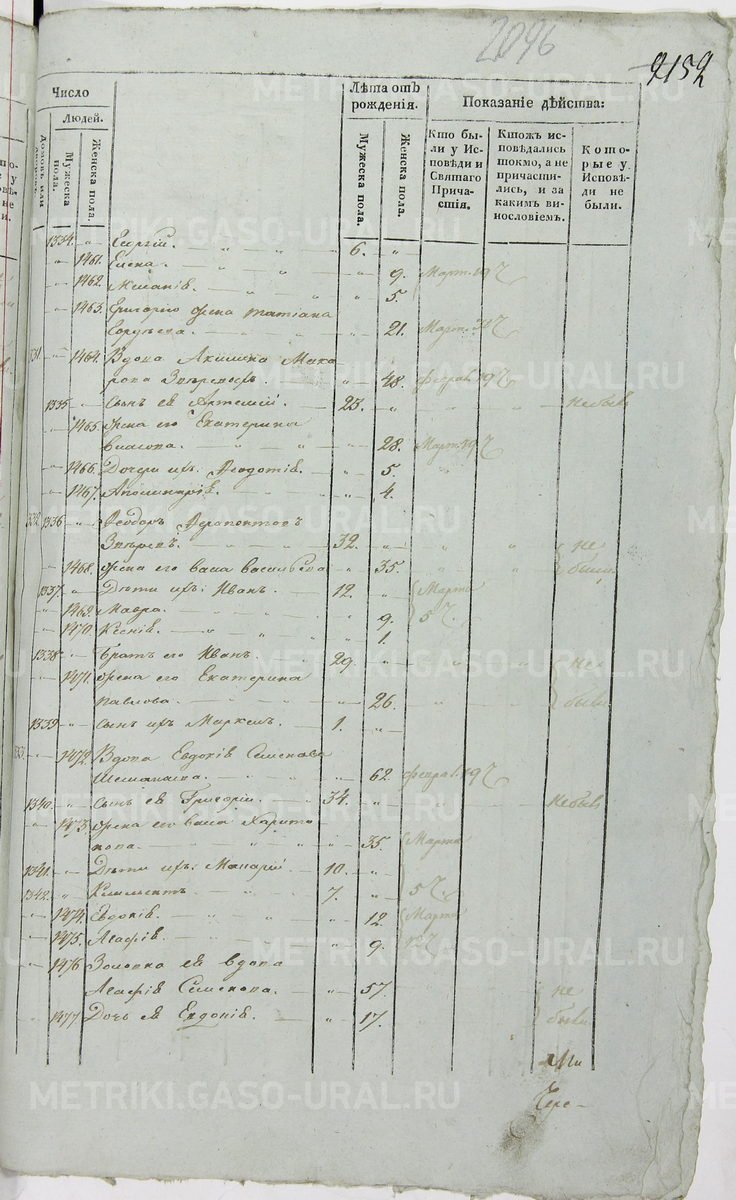 2096
2152
Число
Людей.
Домовъ или
Мужеска пола.
Женска пола.
Лѣта отъ рожденія.
Мужеска пола.
Женска пола.
Показаніе дѣйства:
Кто бы-
ли у Ис-
повѣди и
Святаго
Прича-
стія.
Ктожъ ис-
повѣдались
токмо, а не
причасти-
лись, и за
какимъ ви-
нословіемъ.
Кото-
рые у
Исповѣ-
ди не
были.
1334. Георгій. 6.
1461. Елена. 9. Март. 19
1462. 5.
1463. Григорію жена Татіана
21. Март. 30
1464. Вдова Акилина Мака
рова 48. Феврал. 19
1335 Сынъ ея Артемій 25. не бывъ
1465. Жена его Екатерина
Власова. 28. Март. 19
1466. Дочери ихъ Ѳеодотія. 5.
1467. Аполинарія. 4.
332. 1336 Ѳеодоръ Ѳерапонтовъ
Звѣревъ. 32. не
1468. Жена его Васса Васильева 35. были
1337. Дѣти ихъ: Иванъ. 12. Марта
1469. Мавра. 9. 5
1470. Ксенія. 1.
1338. Братъ его Иванъ 29. не
1471. Жена его Екатерина
Павлова. 26. были
1339 Сынъ ихъ Маркелъ. 1.
1472. Вдова Евдокія Семенова
62. Феврал. 19
1340. Сынъ ея Григорій. 34. не бывъ
1473. Жена его Васса Харито
нова. 35. Марта
1341. Дѣти ихъ: Макарій 10.
1342. Климентъ 7. 5
1474. Евдокія. 12. Марта
1475. Агафія. 9. 12
1476 Золовка ея вдова
Агафія Семенова. 57. не
1477 Дочь ея Евдокія. 17. были
METRIKI.GASO-URAL.RU